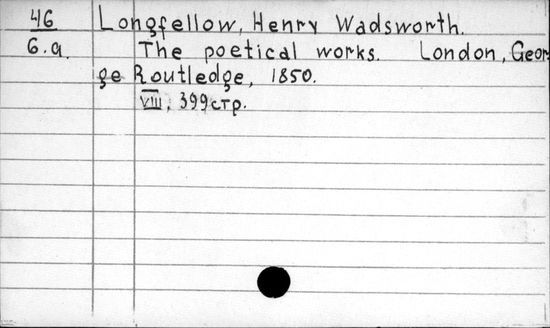 46 Longfellow, Henry Wadsworth.
6.a. The poetical works. London, Geor-
ge Routledge, 1850.
VIII, 399 стр.